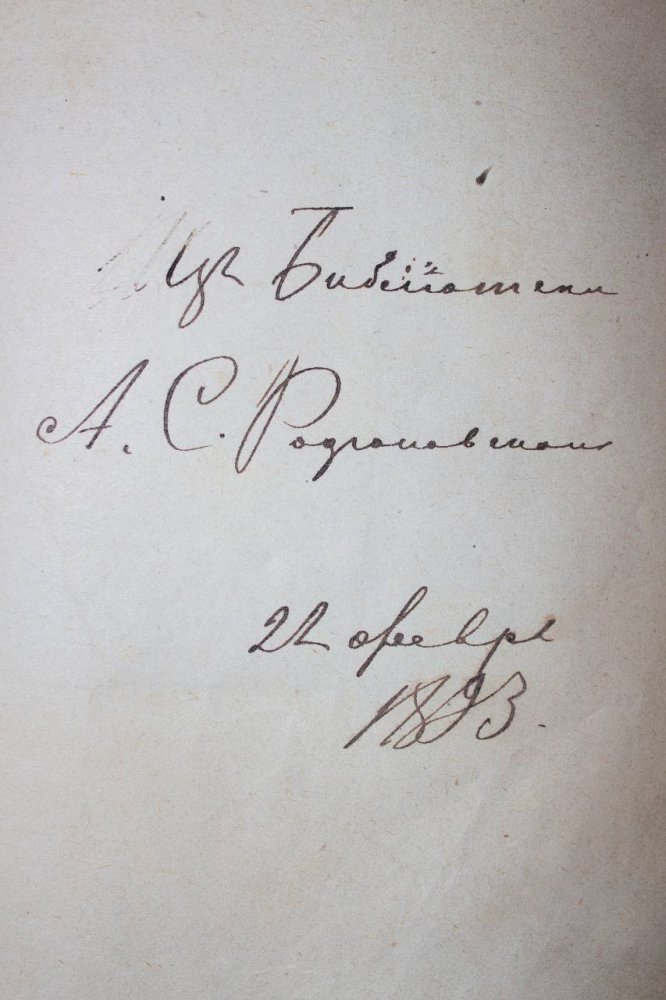 Изъ Библіотеки
А. С. Родзановской
22 февр
1893.